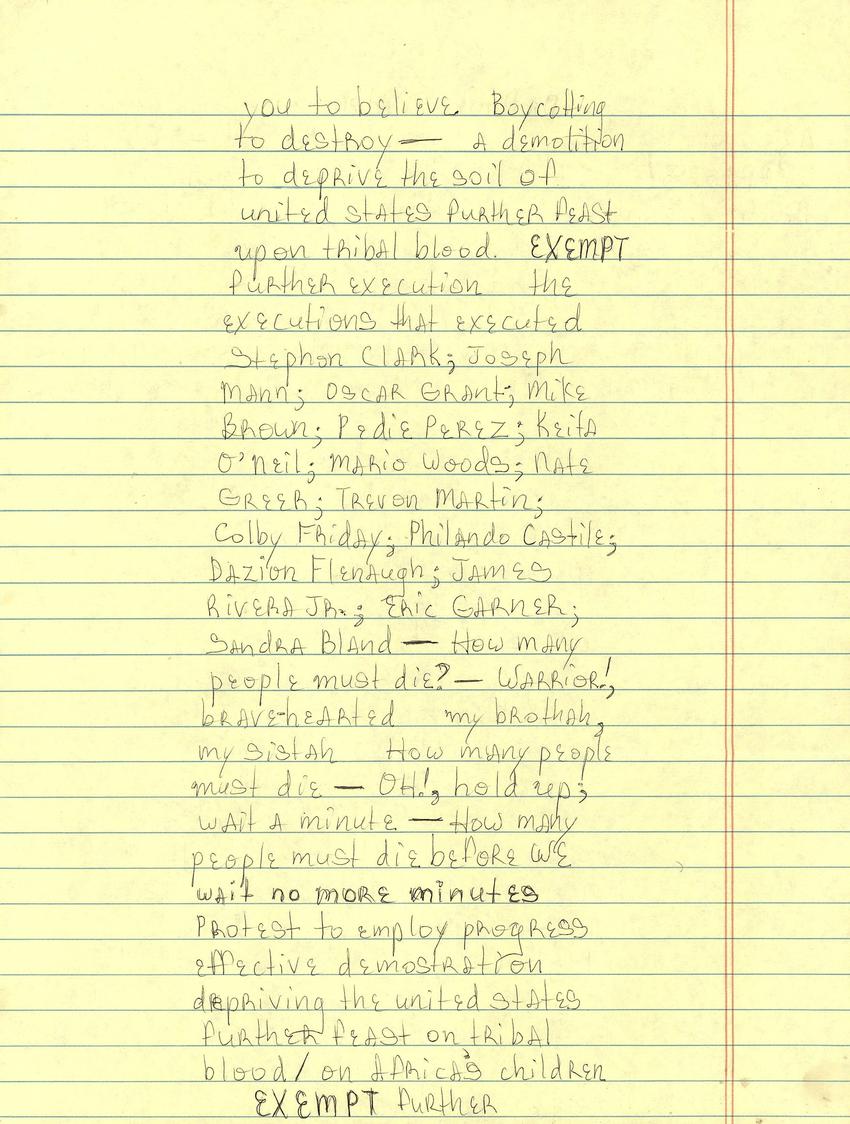 you to believe Boycotting
to destroy — A demotition
to deprive the soil of
united states further feast
upon tribal blood. EXEMPT
further execution the
executions that executed
Stephon Clark; Joseph
Mann; Oscar Grant; Mike
Brown; Pedie Perez; Keita
O'Neil; Mario Woods; Nate
Greer; Trevon Martin;
Colby Friday; Philando Castile;
Dazion Flenaugh; James
Rivera Jr.; Eric Garner;
Sandra Bland — How many
people must die? — Warrior!,
brave-hearted my brothah,
my sistah How many people
must die — OH!, hold up;
wait a minute — How many
people must die before we
wait no more minutes
Protest to employ progress
effective demostration
depriving the united states
further feast on tribal
blood/on Africa's children
EXEMPT further